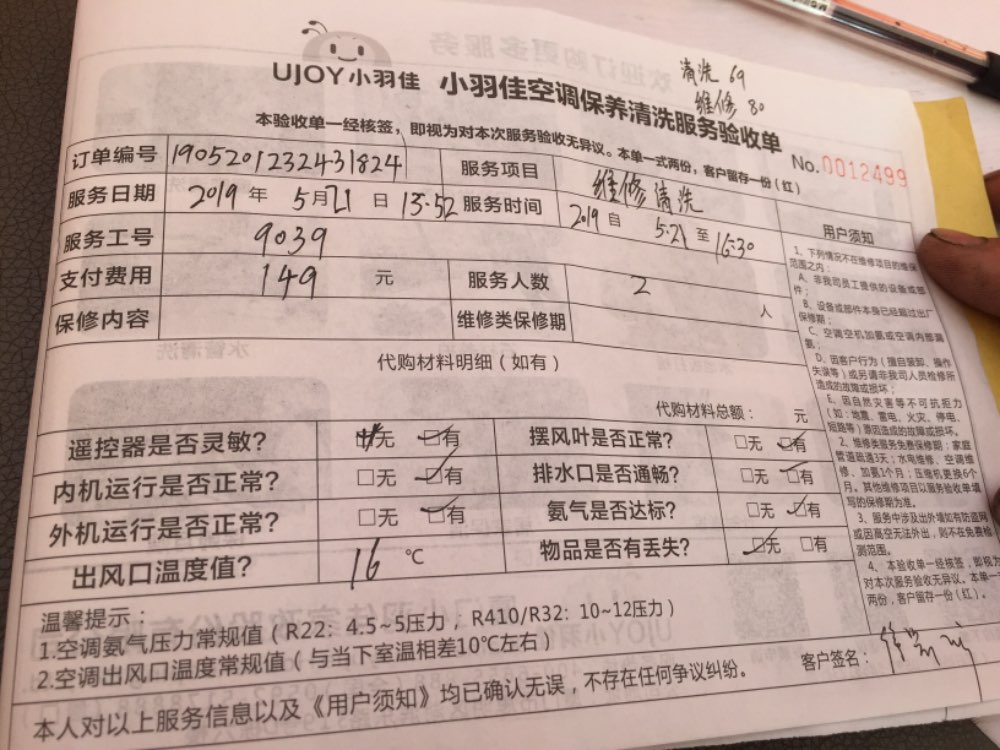 清洗 69
维修 80
UJOY小羽佳 小羽佳空调保养清洗服务验收单
本验收单一经核签，即视为对本次服务验收无异议。本单一式两份，客户留存一份（红） No.0012499
订单编号 1905201232431824 服务项目 维修清洗
服务日期 2019 年 5月21日 13:52 服务时间 2019 自 5.21 至 16:30
服务工号 9039
支付费用 149 元 服务人数 2 人
保修内容 维修类保修期
代购材料明细（如有）
代购材料总额： 元
遥控器是否灵敏? 无 □有 摆风叶是否正常? □无 □有
内机运行是否正常? □无 □有 排水口是否通畅? □无 □有
外机运行是否正常? □无 □有 氨气是否达标? □无 □有
出风口温度值? 16 ℃ 物品是否有丢失? □无 □有
温馨提示：
1.空调氨气压力常规值（R22: 4.5~5压力，R410/R32: 10~12压力）
2.空调出风口温度常规值（与当下室温相差10℃左右）
本人对以上服务信息以及《用户须知》均已确认无误，不存在任何争议纠纷。
客户签名：
用户须知
1、下列情况不在维修项目的维保
范围之内：
A、非我司员工提供的设备或部
件；
B、设备或部件本身已经超过出厂
保修期；
C、空调空机加氨或空调内部漏
氨；
D、因客户行为（擅自装卸、操作
失误等）或另请非我司人员检修所
造成的故障或损坏；
E、因自然灾害等不可抗拒力
（如：地震、雷电、火灾、停电、
短路等）原因造成的故障或损坏。
2、维修类服务免费保修期：家庭
管道疏通3天；水电维修、空调维
修、加氨1个月；压缩机更换6个
月。其他维修项目以服务验收单填
写的保修期为准。
3、服务中涉及出外墙如有防盗网
或因高空无法外出，则不在免费检
测范围。
4、本验收单一经核签，即视为
对本次服务验收无异议。本单一式
两份，客户留存一份（红）。